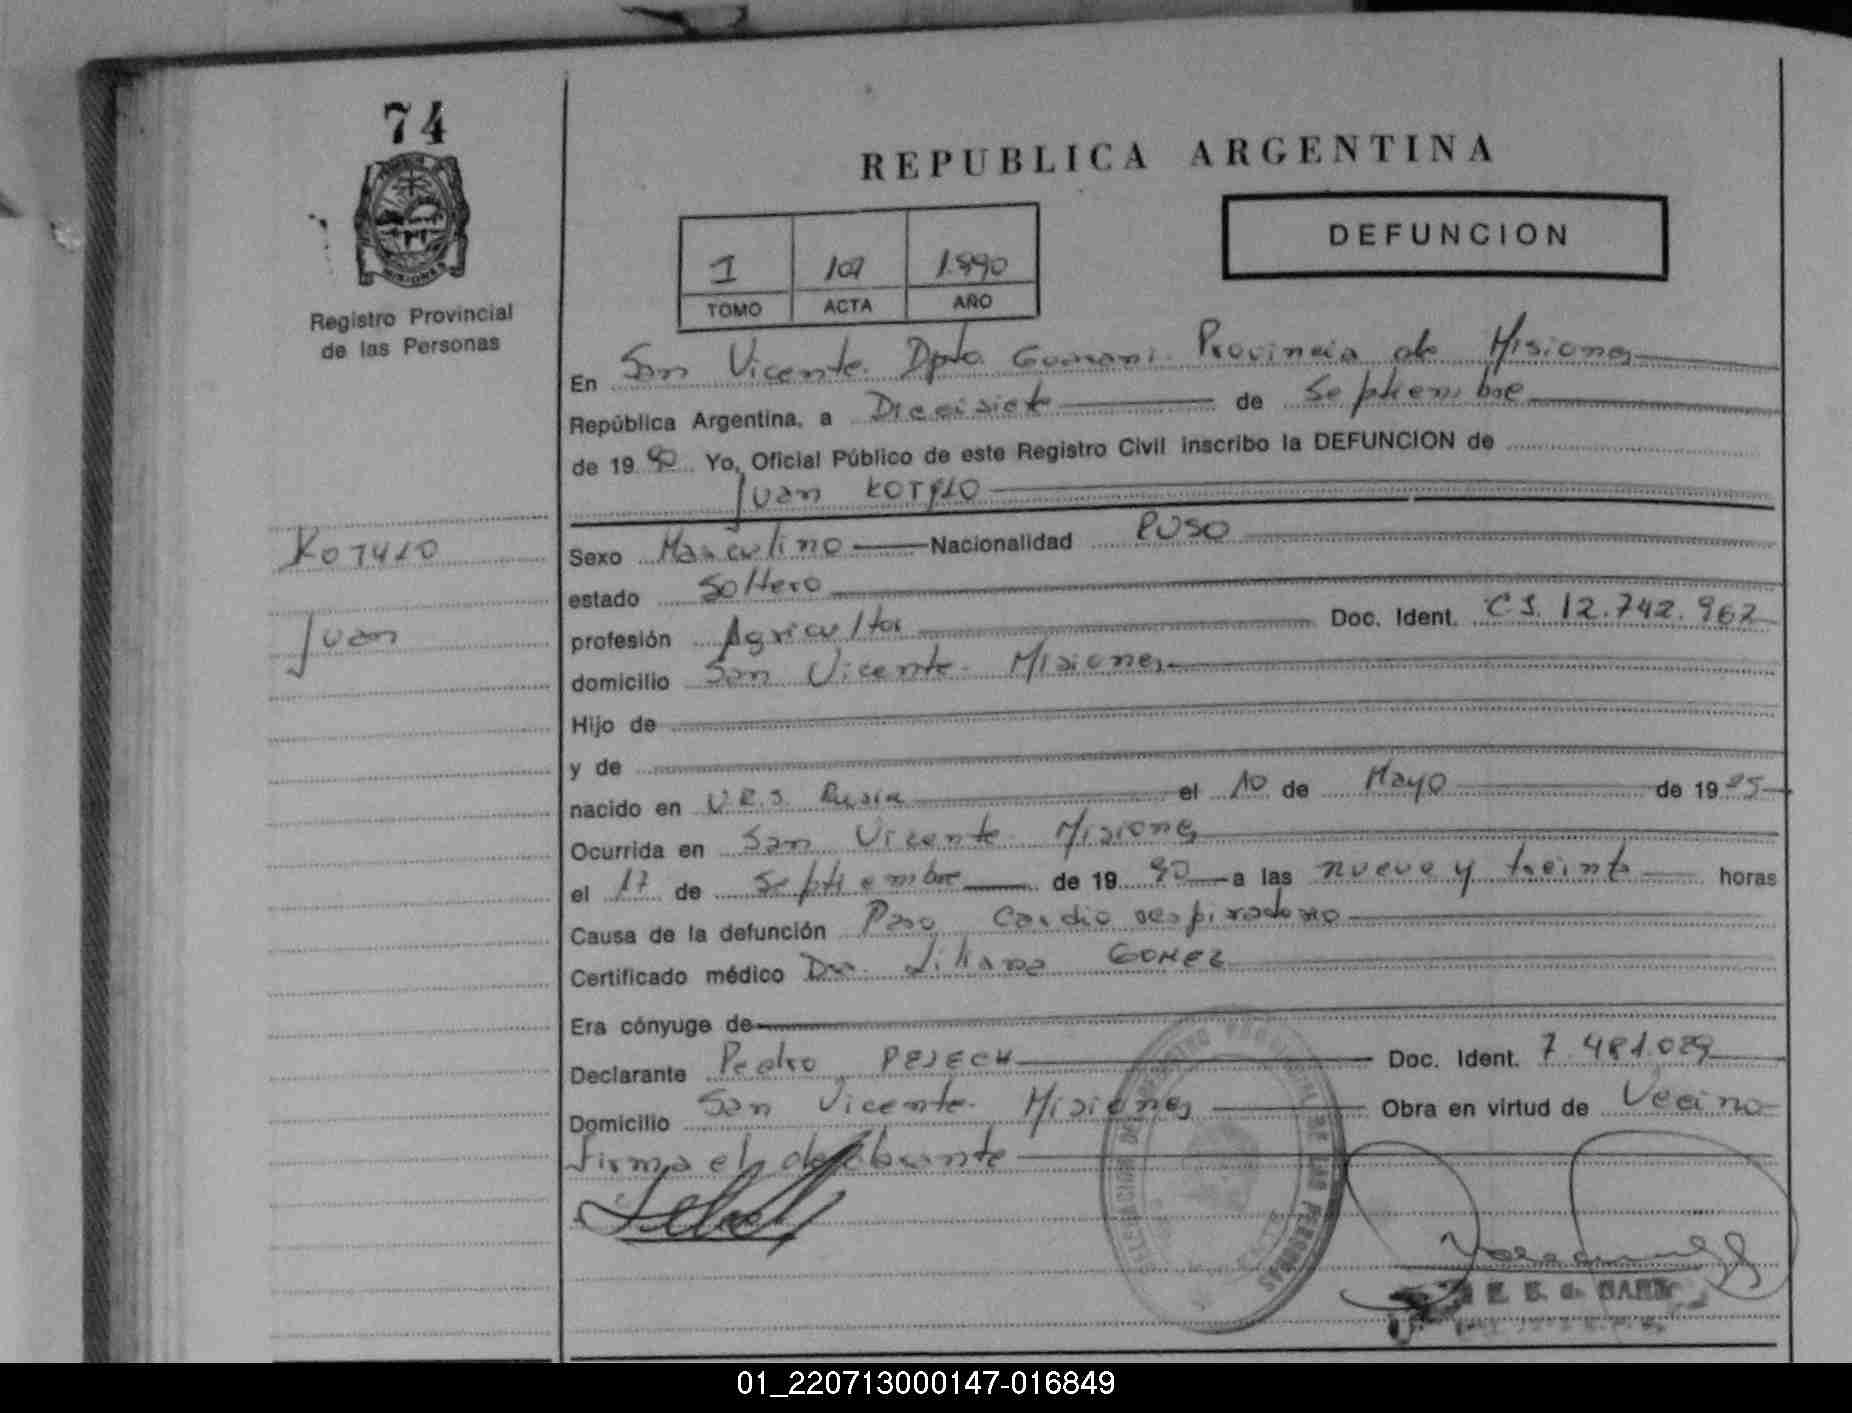 74
REPUBLICA ARGENTINA
DEFUNCION
I 107 1.990
TOMO ACTA AÑO
MISIONES
Registro Provincial
de las Personas
En San Vicente. Dpto. Guarani. Provincia de Misiones
República Argentina, a Diecisiete de Septiembre
de 1990 Yo, Oficial Público de este Registro Civil inscribo la DEFUNCION de
Juan KOTYLO
KOTYLO
Juan
Sexo Masculino Nacionalidad RUSO
estado Soltero
profesión Agricultor Doc. Ident. C.I. 12.742.962
domicilio San Vicente. Misiones
Hijo de
y de
nacido en U.R.S. Rusia el 10 de Mayo de 19
Ocurrida en San Vicente Misiones
el 17 de Septiembre de 1990 a las nueve y treinta horas
Causa de la defunción Paro Cardio respiratorio
Certificado médico Dra. Liliana GOMEZ
Era cónyuge de
Declarante Pedro PEJECH Doc. Ident. 7.481.029
Domicilio San Vicente. Misiones Obra en virtud de Vecino
Firma el declarante
DELEGACION DE REGISTRO PROVINCIAL DE LAS PERSONAS
01_220713000147-016849